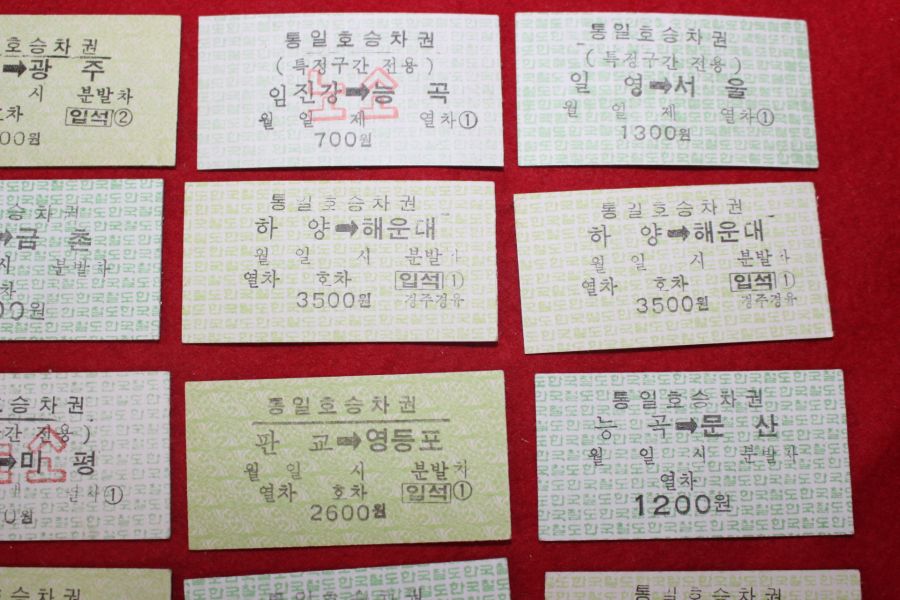 호승차권
➡광 주
시 분발차
호차 입석②
00원
통일호승차권
(특정구간 전용)
임진강➡능 곡
노소
월 일 제 열차①
700원
통일호승차권
(특정구간 전용)
일 영➡서 울
월 일 제 열차①
1300원
승차권
➡금 촌
시 분발차
차
00원
통일호승차권
하 양➡해운대
월 일 시 분발차
열차 호차 입석①
3500원 경주경유
통일호승차권
하 양➡해운대
월 일 시 분발차
열차 호차 입석①
3500원 경주경유
호승차권
간 전용)
➡미 평
소
열차①
0원
통일호승차권
판 교➡영등포
월 일 시 분발차
열차 호차 입석①
2600원
통일호승차권
능 곡➡문 산
월 일 시 분발차
열차
1200원
호승차권
통일호승차권
통일호승차권